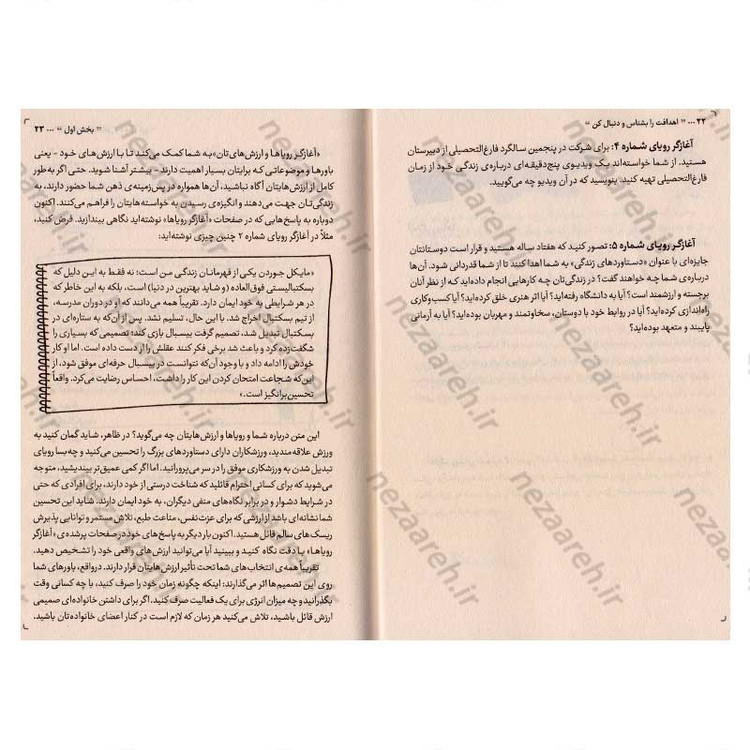 ۲۲ ... " اهدافت را بشناس و دنبال کن "
آغازگر رویای شماره ۴: برای شرکت در پنجمین سالگرد فارغ‌التحصیلی از دبیرستان
هستید. از شما خواسته‌اند یک ویدیوی پنج‌دقیقه‌ای درباره‌ی زندگی خود از زمان
فارغ‌التحصیلی تهیه کنید. بنویسید که در آن ویدیو چه می‌گویید.
آغازگر رویای شماره ۵: تصور کنید که هفتاد ساله هستید و قرار است دوستانتان
جایزه‌ای با عنوان «دستاوردهای زندگی» به شما اهدا کنند تا از شما قدردانی شود. آن‌ها
درباره‌ی شما چه خواهند گفت؟ در زندگی‌تان چه کارهایی انجام داده‌اید که از نظر آنان
برجسته و ارزشمند است؟ آیا به دانشگاه رفته‌اید؟ آیا اثر هنری خلق کرده‌اید؟ آیا کسب‌وکاری
راه‌اندازی کرده‌اید؟ آیا در روابط خود با دوستان، سخاوتمند و مهربان بوده‌اید؟ آیا به آرمانی
پایبند و متعهد بوده‌اید؟
" بخش اول " ... ۲۳
«آغازگر رویاها و ارزش‌های‌تان» به شما کمک می‌کند تا با ارزش‌های خود - یعنی
باورها و موضوعاتی که برایتان بسیار اهمیت دارند - بیشتر آشنا شوید. حتی اگر به‌طور
کامل از ارزش‌هایتان آگاه نباشید، آن‌ها همواره در پس‌زمینه‌ی ذهن شما حضور دارند، به
زندگی‌تان جهت می‌دهند و انگیزه‌ی رسیدن به خواسته‌هایتان را فراهم می‌کنند. اکنون
دوباره به پاسخ‌هایی که در صفحات «آغازگر رویاها» نوشته‌اید نگاهی بیندازید. فرض کنید،
مثلاً در آغازگر رویای شماره ۲ چنین چیزی نوشته‌اید:
«مایکل جوردن یکی از قهرمانان زندگی من است؛ نه فقط به این دلیل که
بسکتبالیستی فوق‌العاده (و شاید بهترین در دنیا) است، بلکه به این خاطر که
در هر شرایطی به خود ایمان دارد. تقریباً همه می‌دانند که او در دوران مدرسه،
از تیم بسکتبال اخراج شد. با این حال، تسلیم نشد. پس از آن‌که به ستاره‌ای در
بسکتبال تبدیل شد، تصمیم گرفت بیسبال بازی کند؛ تصمیمی که بسیاری را
شگفت‌زده کرد و باعث شد برخی فکر کنند عقلش را از دست داده است. اما او کار
خودش را ادامه داد و با وجود آن‌که نتوانست در بیسبال حرفه‌ای موفق شود، از
این‌که شجاعت امتحان کردن این کار را داشت، احساس رضایت می‌کرد. واقعاً
تحسین‌برانگیز است.»
این متن درباره شما و رویاها و ارزش‌هایتان چه می‌گوید؟ در ظاهر، شاید گمان کنید به
ورزش علاقه‌مندید، ورزشکاران دارای دستاوردهای بزرگ را تحسین می‌کنید و چه‌بسا رویای
تبدیل شدن به ورزشکاری موفق را در سر می‌پرورانید. اما اگر کمی عمیق‌تر بیندیشید، متوجه
می‌شوید که برای کسانی احترام قائلید که شناخت درستی از خود دارند، برای افرادی که حتی
در شرایط دشوار و در برابر نگاه‌های منفی دیگران، به خود ایمان دارند. شاید این تحسین
شما نشانه‌ای باشد از ارزشی که برای عزت‌نفس، مناعت طبع، تلاش مستمر و توانایی پذیرش
ریسک‌های سالم قائل هستید. اکنون بار دیگر به پاسخ‌های خود در صفحات پرشده‌ی «آغازگر
رویاها» با دقت نگاه کنید و ببینید آیا می‌توانید ارزش‌های واقعی خود را تشخیص دهید.
تقریباً همه‌ی انتخاب‌های شما تحت تأثیر ارزش‌هایتان قرار دارند. درواقع، باورهای شما
روی این تصمیم‌ها اثر می‌گذارند: اینکه چگونه زمان خود را صرف کنید، با چه کسانی وقت
بگذرانید و چه میزان انرژی برای یک فعالیت صرف کنید. اگر برای داشتن خانواده‌ای صمیمی
ارزش قائل باشید، تلاش می‌کنید هر زمان که لازم است در کنار اعضای خانواده‌تان باشید.
nezaareh.ir